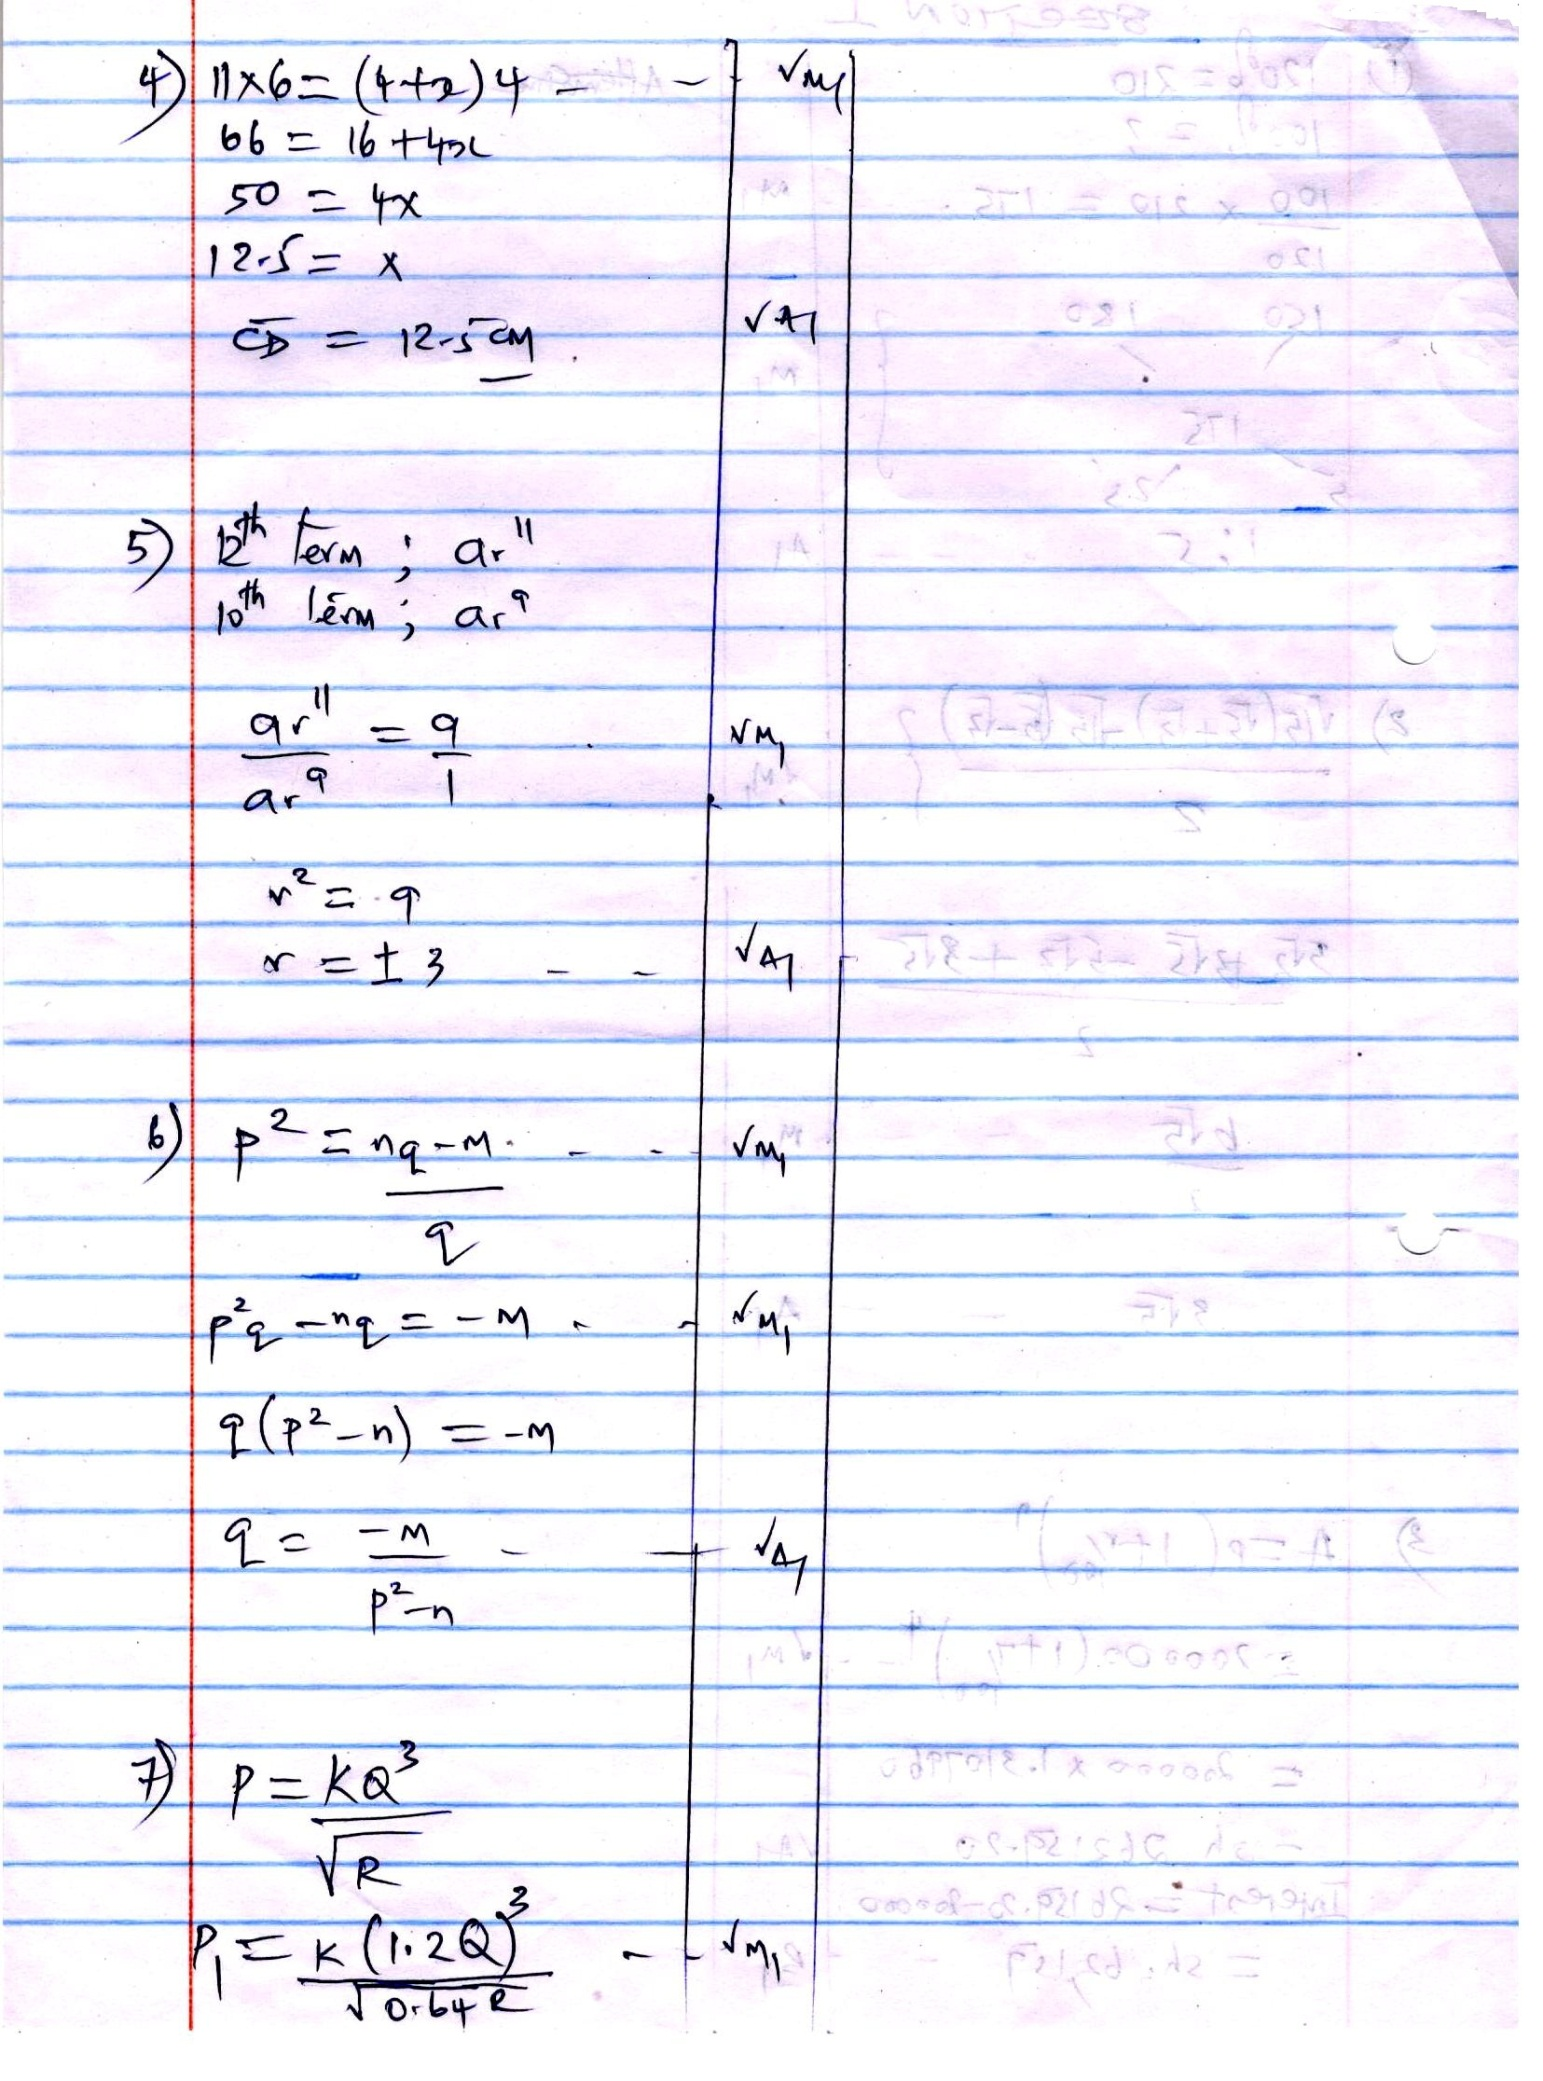 4) 11×6 = (4+x)4 - - √M1
66 = 16 + 4x
50 = 4x
12.5 = x
CD = 12.5 CM √A1
5) 12th Term ; ar^11
10th Term ; ar^9
ar^11 / ar^9 = 9/1 √M1
r² = 9
r = ± 3 - - √A1
6) p² = nq - M / q - - √M1
p²q - nq = -M - - √M1
q(p² - n) = -M
q = -M / p² - n - - √A1
7) P = KQ³ / √R
P1 = K(1.2Q)³ / √0.64R - - √M1